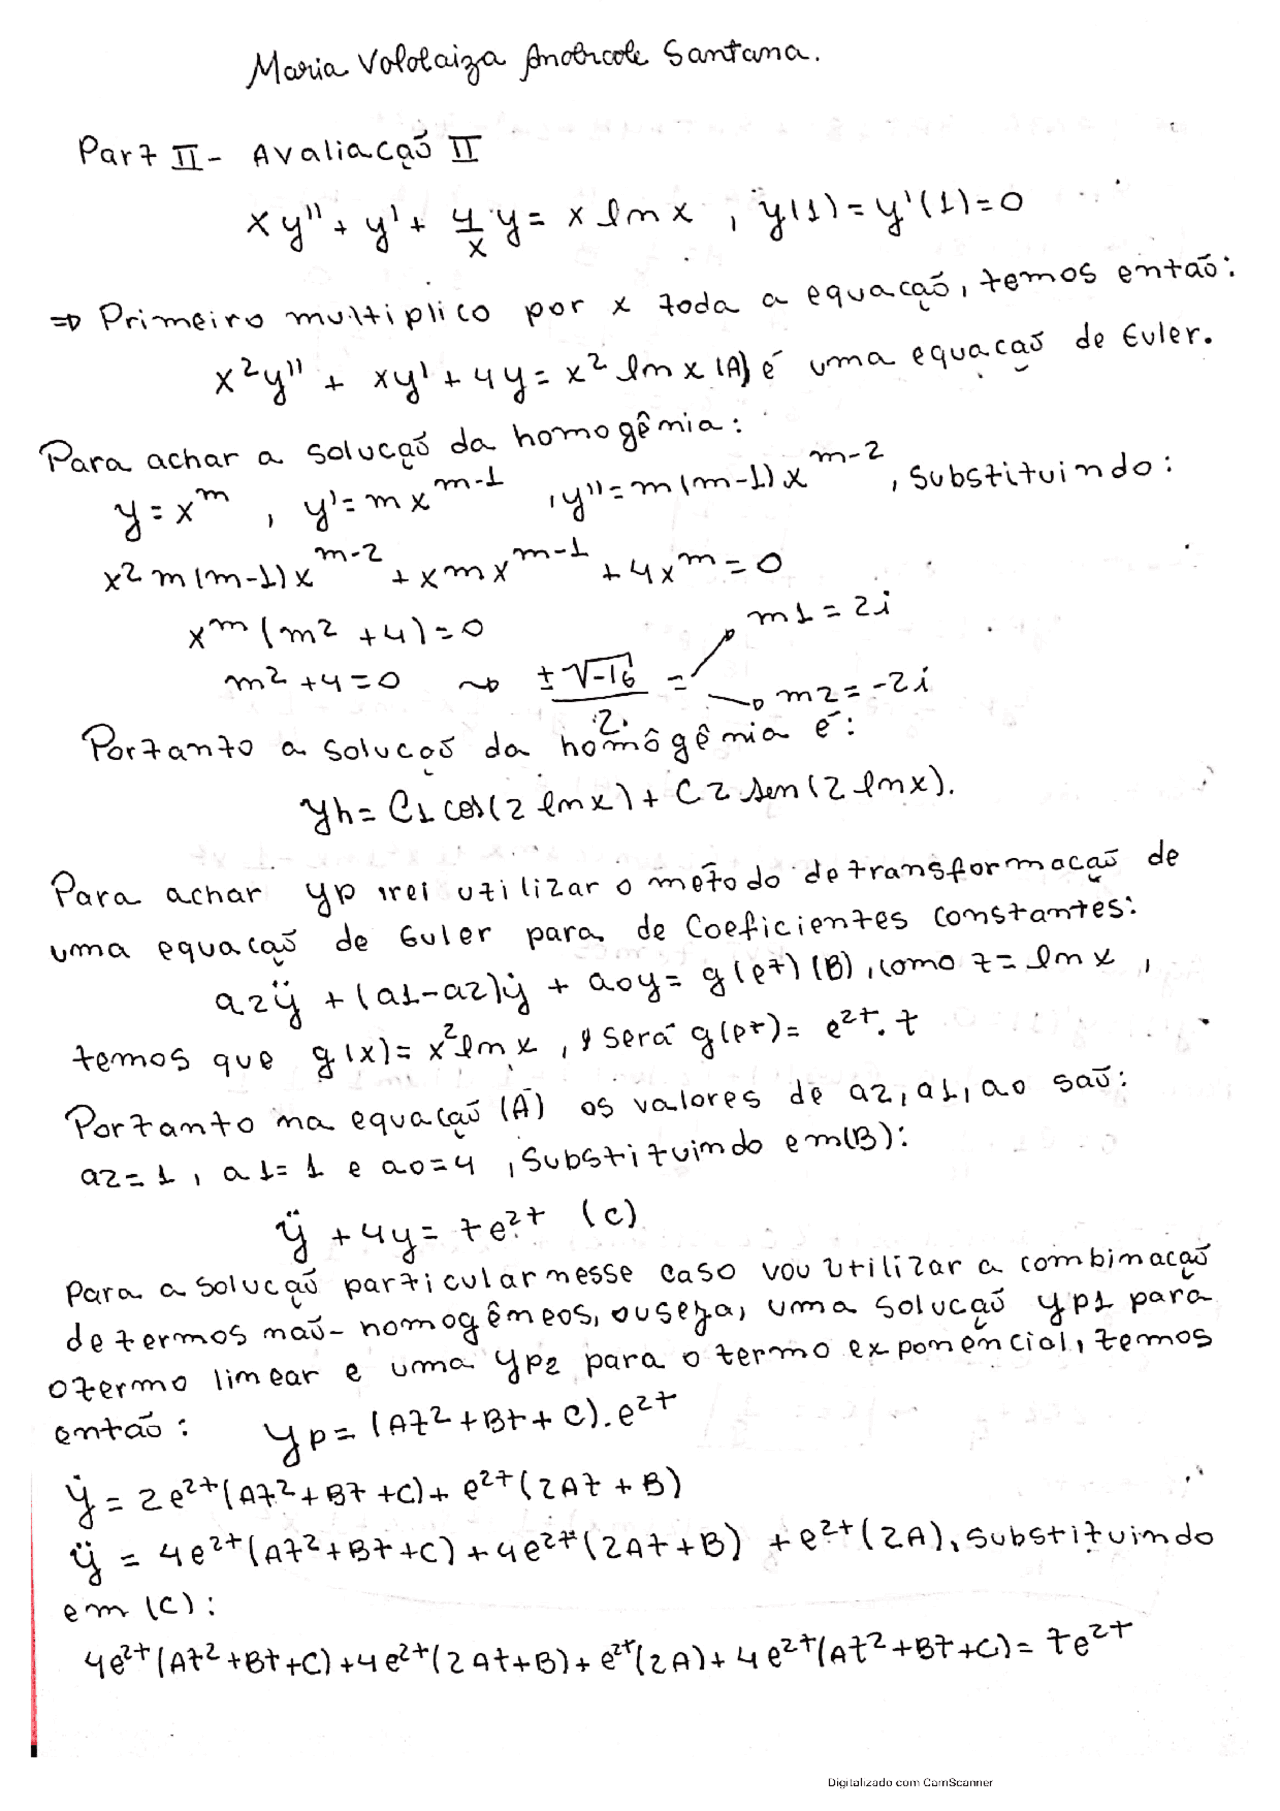 Maria Santana.
Part II - Avaliação II
xy'' + y' + 4/x y = x ln x , y(1) = y'(1) = 0
⇒ Primeiro multiplico por x toda a equação, temos então:
x²y'' + xy' + 4y = x² ln x (A) é uma equação de Euler.
Para achar a solução da homogênia:
y = x^m , y' = mx^(m-1) , y'' = m(m-1)x^(m-2) , Substituindo:
x² m(m-1)x^(m-2) + xmx^(m-1) + 4x^m = 0
x^m (m² + 4) = 0
m² + 4 = 0 → ±√-16 / 2 = m1 = 2i
m2 = -2i
Portanto a solução da homôgênia é:
yh = C1 cos(2 ln x) + C2 sen(2 ln x).
Para achar yp irei utilizar o método de transformação de
uma equação de Euler para de Coeficientes constantes:
a2ÿ + (a1-a2)ẏ + a0y = g(e^t) (B), como t = ln x ,
temos que g(x) = x² ln x , será g(e^t) = e^2t . t
Portanto na equação (A) os valores de a2, a1, a0 são:
a2 = 1 , a1 = 1 e a0 = 4 , Substituindo em (B):
ÿ + 4y = te^2t (C)
Para a solução particular nesse caso vou utilizar a combinação
de termos não-homogêmeos, ou seja, uma solução yp1 para
o termo linear e uma yp2 para o termo exponêncial, temos
então: yp = (At² + Bt + C). e^2t
ẏ = 2e^2t (At² + Bt + C) + e^2t (2At + B)
ÿ = 4e^2t (At² + Bt + C) + 4e^2t (2At + B) + e^2t (2A), Substituindo
em (C):
4e^2t (At² + Bt + C) + 4e^2t (2At + B) + e^2t (2A) + 4e^2t (At² + Bt + C) = te^2t
Digitalizado com CamScanner